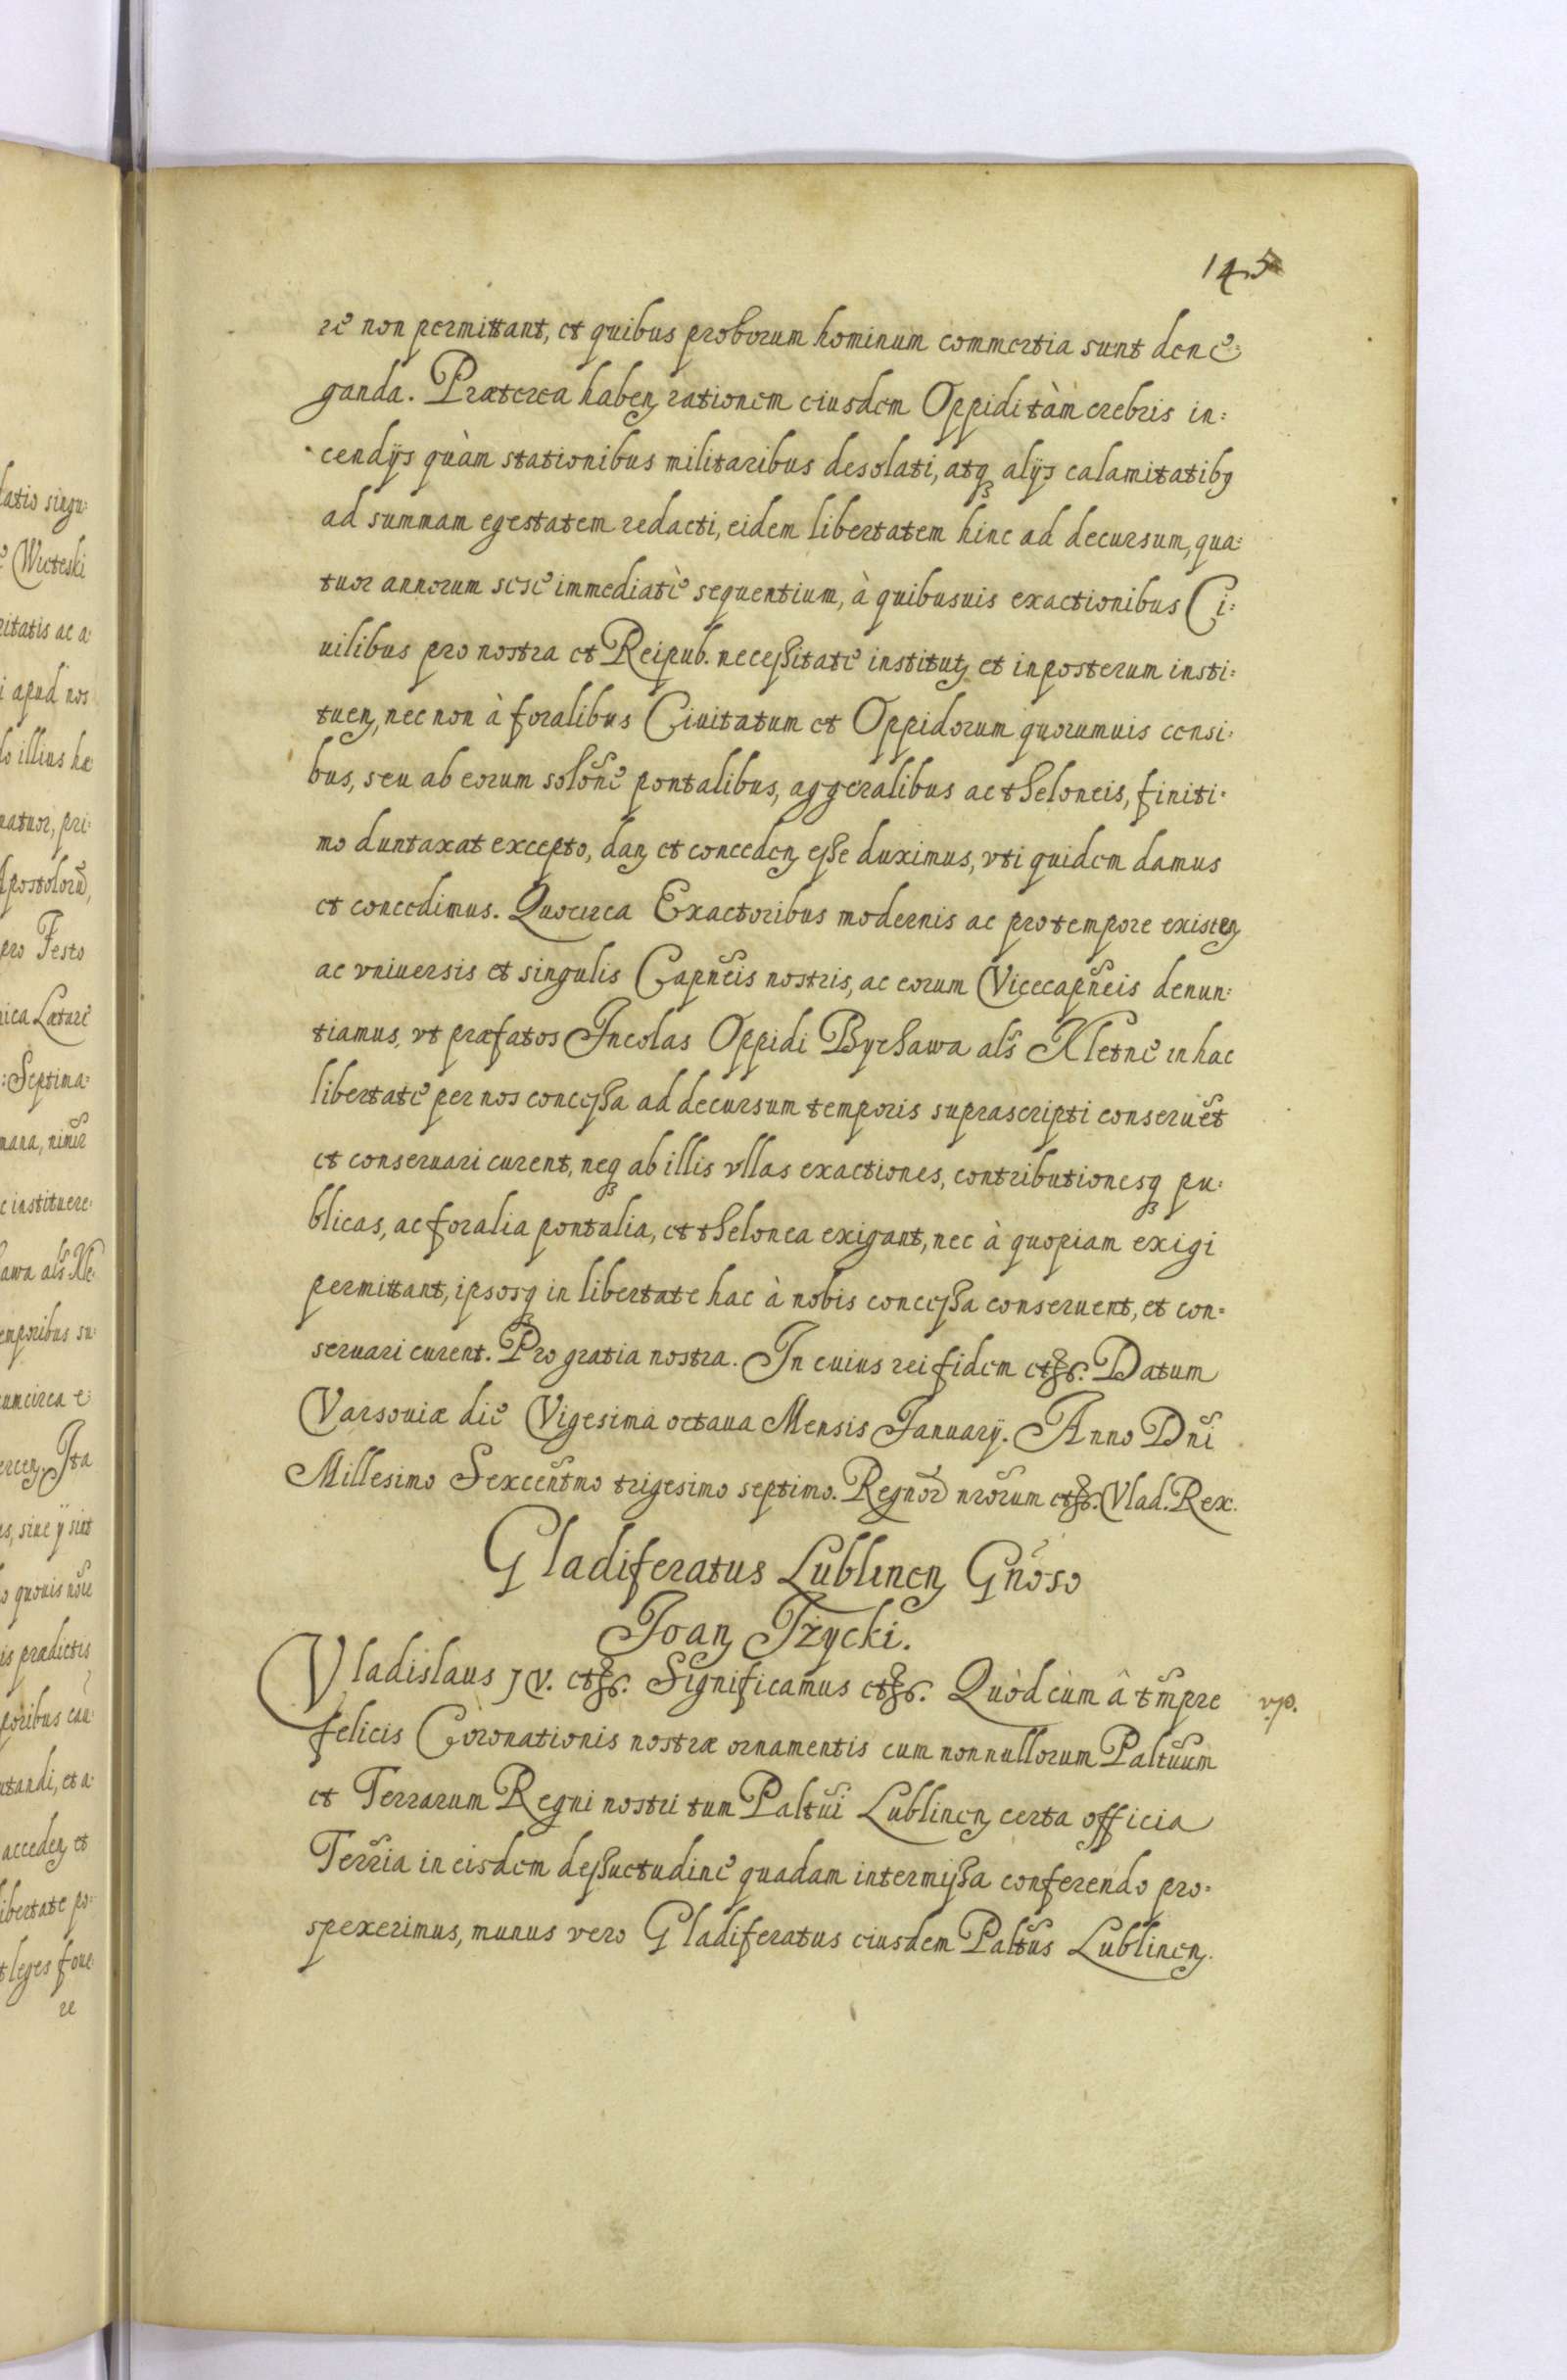 145
re non permittant, et quibus proborum hominum commertia sunt dene:
ganda. Præterea haben rationem eiusdem Oppidi tàm crebris in:
cendijs quàm stationibus militaribus desolati, atq alijs calamitatibq
ad summam egestatem redacti, eidem libertatem hinc ad decursum, qua:
tuor annorum sese immediatè sequentium, à quibusuis exactionibus Ci:
uilibus pro nostra et Reipub. necessitate institut et inposterum insti:
tuen, nec non à foralibus Ciuitatum et Oppidorum quorumuis censi:
bus, seu ab eorum solone pontalibus, aggeralibus ac theloneis, finiti:
mo duntaxat excepto, dan et conceden esse duximus, vti quidem damus
et concedimus. Quocirca Exactoribus modernis ac pro tempore existen
ac vniuersis et singulis Capneis nostris, ac eorum Vicecapneis denun:
tiamus, vt præfatos Incolas Oppidi Bychawa als Kletne in hac
libertate per nos concessa ad decursum temporis suprascripti conseruet
et conseruari curent, neq ab illis vllas exactiones, contributionesq pu:
blicas, ac foralia pontalia, et thelonea exigant, nec à quopiam exigi
permittant, ipsosq in libertate hac à nobis concessa conseruent, et con:
seruari curent. Pro gratia nostra. In cuius rei fidem etc. Datum
Varsouiæ die Vigesima octaua Mensis Januarij. Anno Dni
Millesimo Sexcentmo trigesimo septimo. Regnor nrorum etc. Vlad. Rex.
Gladiferatus Lublinen Gnoso
Joan Trzycki.
Vladislaus IV. etc. Significamus etc. Quòd cùm â tmpre
vp.
felicis Coronationis nostræ ornamentis cum nonnullorum Paltuum
et Terrarum Regni nostri tum Paltui Lublinen certa officia
Terria in eisdem dessuetudine quadam intermissa conferendo pro:
spexerimus, munus vero Gladiferatus eiusdem Paltus Lublinen.
latio singu:
Wieteski
ritatis ac a:
i apud nos
lo illius hæ
natuor, pri:
Apostoloru,
pro Festo
nica Lætare
Septima:
c instituere:
awa als Kle:
emporibus su:
umcirca e:
ercen. Ita
us, siue ij sint
o quouis nore
is prædictis
utandi, et a:
acceden et
libertate po:
t leges foue:
re